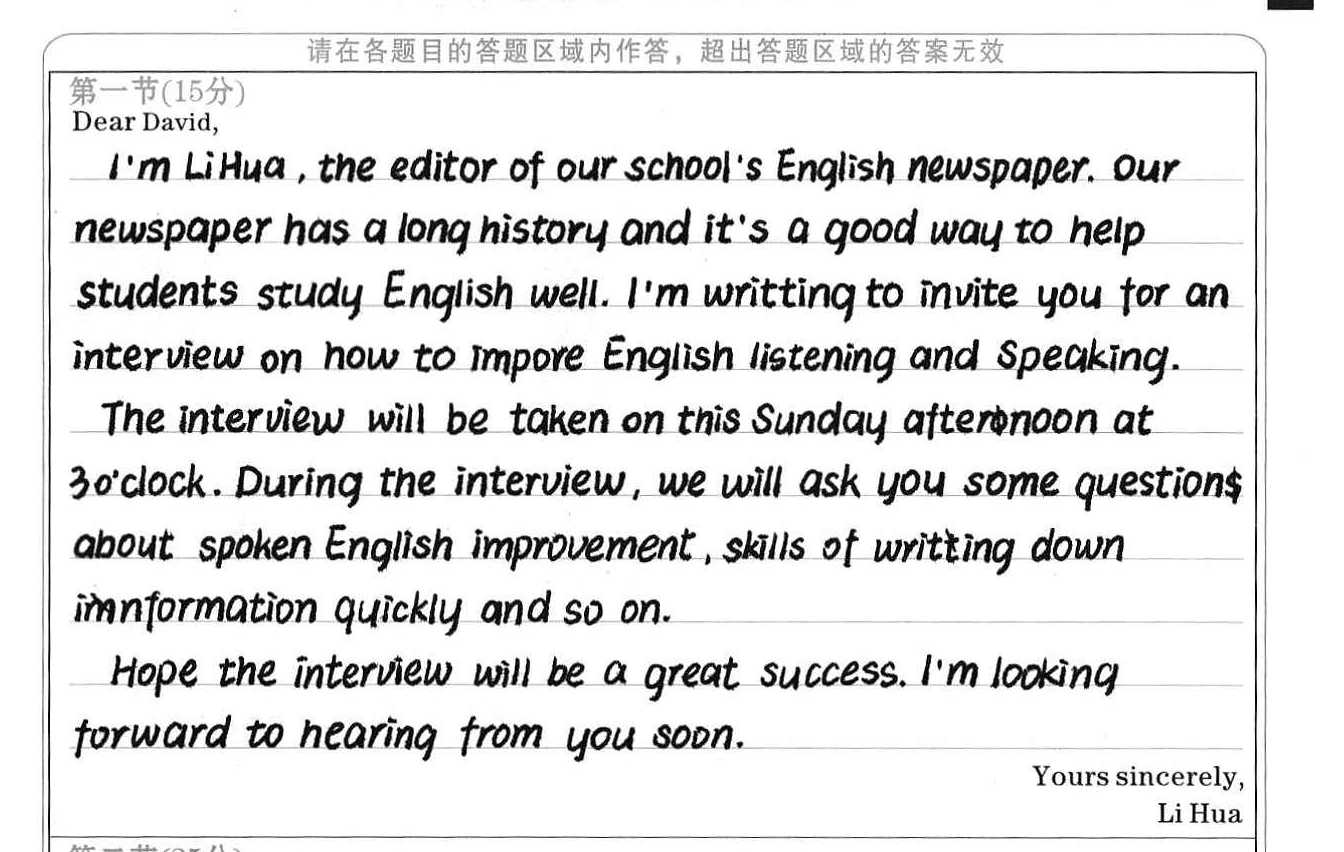 请在各题目的答题区域内作答，超出答题区域的答案无效
第一节(15分)
Dear David,
I'm Li Hua, the editor of our school's English newspaper. Our
newspaper has a long history and it's a good way to help
students study English well. I'm writting to invite you for an
interview on how to impore English listening and speaking.
The interview will be taken on this Sunday afternoon at
3 o'clock. During the interview, we will ask you some questions
about spoken English improvement, skills of writting down
imnformation quickly and so on.
Hope the interview will be a great success. I'm looking
forward to hearing from you soon.
Yours sincerely,
Li Hua